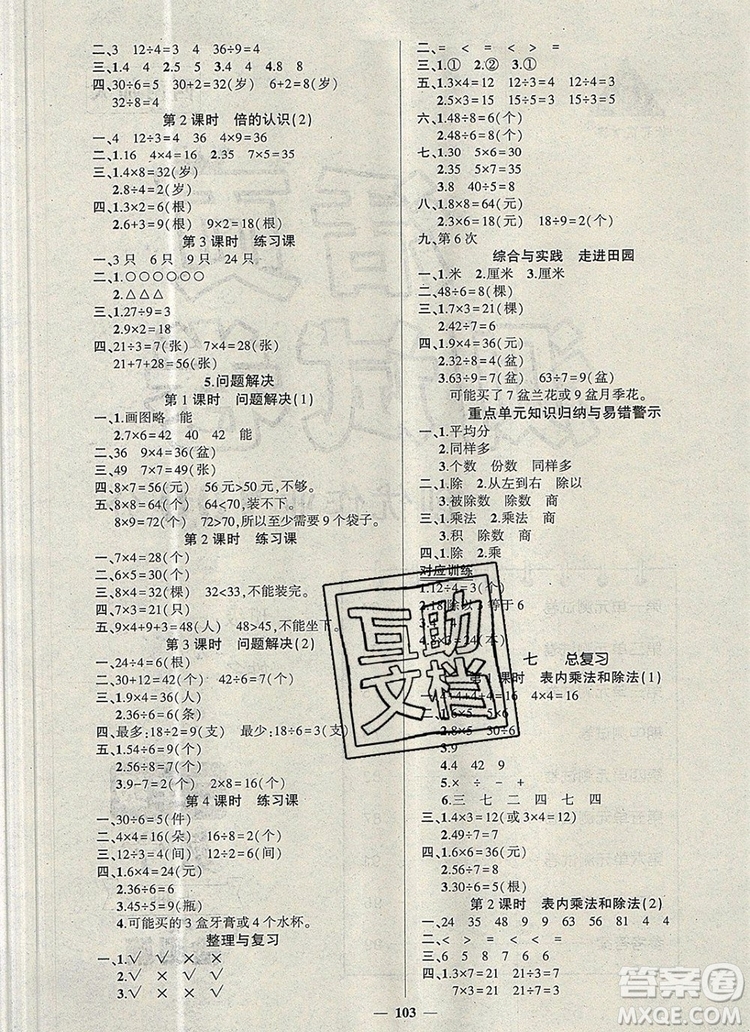 二、3 12÷4=3 4 36÷9=4
三、1.4 4 2.5 5 3.4 4 4.8 8
四、30÷6=5 30+2=32(岁) 6+2=8(岁)
32÷8=4
第2课时 倍的认识(2)
一、4 12÷3=4 4 9×4=36
二、1.16 4×4=16 2.35 7×5=35
三、1.4×8=32(岁)
2.8÷4=2(岁)
四、1.2×3=6(根)
2.6+3=9(根) 9×2=18(根)
第3课时 练习课
一、3只 6只 9只 24只
二、1.○○○○○○
2.△△△
三、1.27÷9=3
2.9×2=18
四、21÷3=7(张) 7×4=28(张)
21+7+28=56(张)
5.问题解决
第1课时 问题解决(1)
一、1.画图略 能
2.7×6=42 40<42 能
二、36 9×4=36(盆)
三、49 7×7=49(张)
四、8×7=56(元) 56元>50元,不够。
五、8×7=56(个) 64>56,装不下。
8×9=72(个) 72>70,所以至少需要9个袋子。
第2课时 练习课
一、7×4=28(个)
二、6×5=30(个)
三、8×4=32(棵) 32<33,不能装完。
四、7×3=21(只)
五、9×4+9+3=48(人) 48>45,不能坐下。
第3课时 问题解决(2)
一、24÷4=6(根)
二、30÷6=5(个)
三、1.9×4=36(元)
2.36÷6=6(元)
四、最多:18÷2=9(个) 最少:18÷6=3(个)
五、1.54÷6=9(个)
2.56÷8=7(个)
3.9-7=2(个) 2×8=16(个)
第4课时 练习课
一、30÷6=5(件)
二、4×4=16(朵) 16÷8=2(个)
三、12÷3=4(间) 12÷4=3(间)
四、1.6×4=24(元)
2.36÷6=6(个)
3.45÷5=9(瓶)
4.可能买的3盒牙膏或4个水杯。
整理与复习
一、1.√ √ × ×
2.√ × √ √
3.× √ × √
二、= < = < > =
三、1.① 2.② 3.①
五、1.3×4=12 12÷4=3 12÷4=3
2.5×3=15 15÷3=5
六、1.48÷8=6(个)
2.48÷6=8(个)
七、1.30 5×6=30
2.35 5×7=35
3.8 40÷5=8
八、1.8×8=64(元)
2.3×6=18(元) 18÷9=2(元)
九、第6次
综合与实践 走进田园
一、1.米 2.厘米 3.厘米
二、48÷6=8(棵)
三、1.7×3=21(棵)
2.42÷7=6
四、1.9×4=36(元)
2.54÷6=9(盆)
3.63÷9=7(盆) 63÷7=9(盆)
可能买了7盆兰花或9盆月季花。
重点单元知识归纳与易错警示
一、1.平均分
2.同样多
3.个数 份数 同样多
二、1.除 2.从左到右 除以
3.被除数 除数 商
三、1.乘法 2.乘法 商
3.积 除数 商
四、1.除 2.乘
对应训练
1.12÷4=3(个)
2.18除以3等于6
=24(本)
七 总复习
课时 表内乘法和除法(1)
=16 4×4=16
5×6
30÷6
3.9
4.
5.× - + ÷
6.三 七 二 四 七 四
二、1.4×3=12(或3×4=12)
2.49÷7=7
三、1.6×9=54(元)
2.9×4=36(元)
3.30÷6=5(元)
第2课时 表内乘法和除法(2)
一、24 35 48 9 63 56 81 4 4
二、< < > > = <
三、6 5 8 7 6 7 8
四、1.3×7=21 21÷3=7
103
互助
文档
答案圈
MXQE.COM